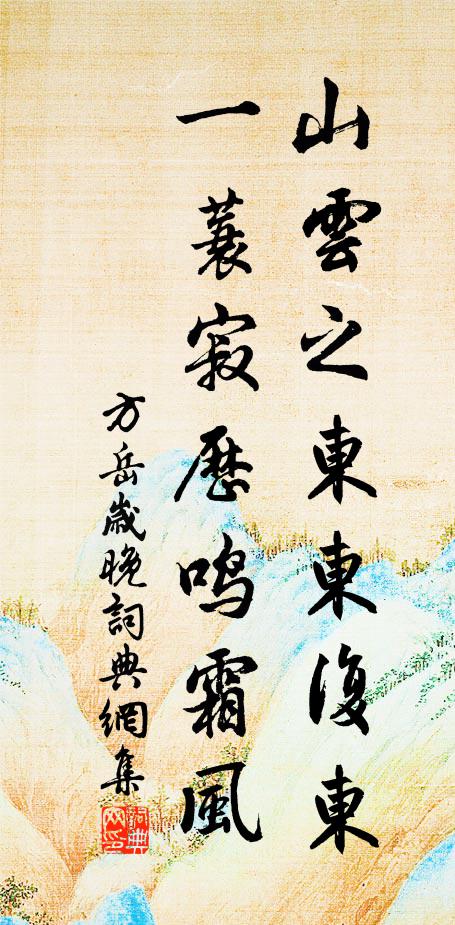 山雲之東東復東
一蓑寂歷鳴霜風
方岳歲晚詞典網集
詞典网印